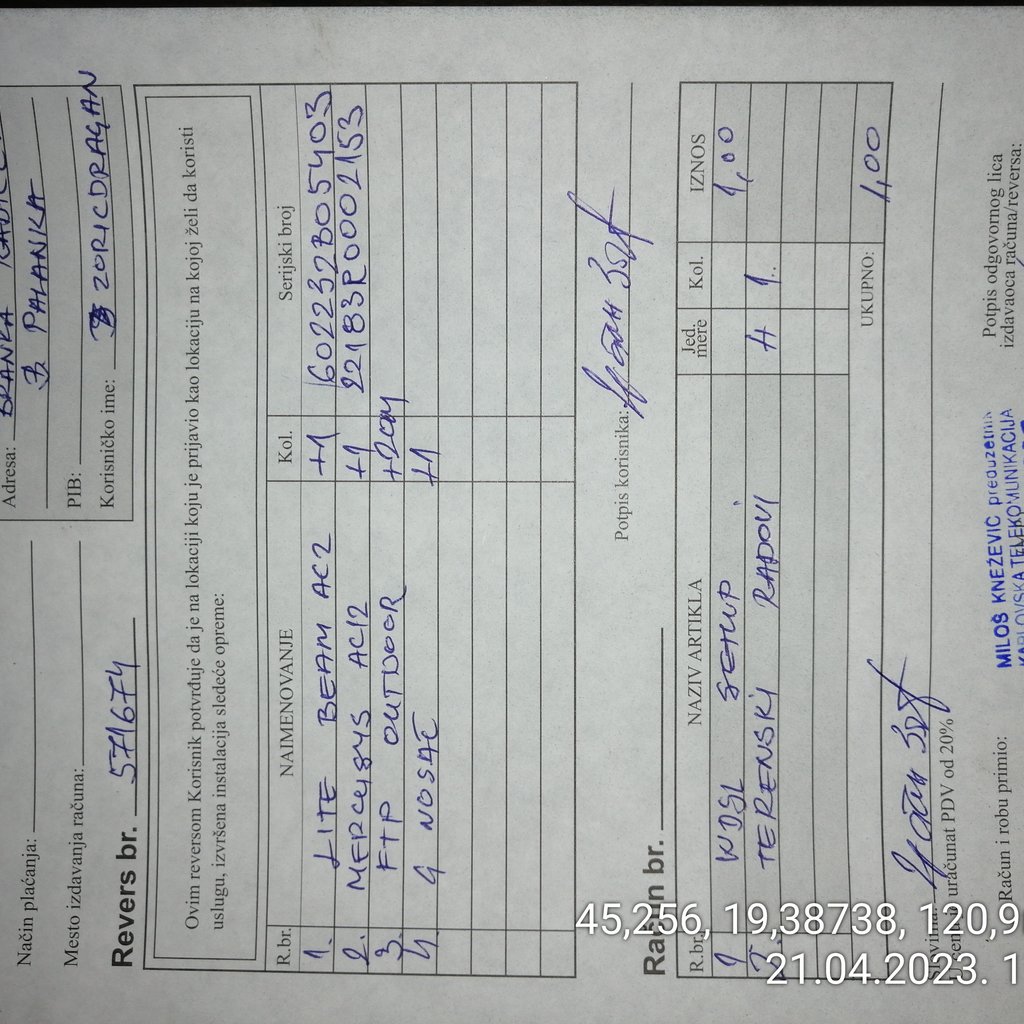 Adresa: BRANKA
B PALANKA
PIB:
Korisničko ime: ZORICDRAGAN
Način plaćanja:
Mesto izdavanja računa:
Revers br. 571674
Ovim reversom Korisnik potvrđuje da je na lokaciji koju je prijavio kao lokaciju na kojoj želi da koristi
uslugu, izvršena instalacija sledeće opreme:
R.br. NAIMENOVANJE Kol. Serijski broj
1. LITE BEAM AC2 +1 602232B05403
2. MERCUSYS AC12 +1 22183R0002153
3. FTP OUTDOOR +20M
4. G NOSAČ +1
Potpis korisnika:
Račun br.
R.br. NAZIV ARTIKLA Jed. mere Kol. IZNOS
1 WDSL SETUP 1,00
2. TERENSKI RADOVI H 1..
UKUPNO: 1,00
uračunat PDV od 20%
Račun i robu primio:
MILOŠ KNEŽEVIĆ preduzetnik
KARLOVSKA TELEKOMUNIKACIJA
Potpis odgovornog lica
izdavaoca računa/reversa:
45,256, 19,38738, 120,9
21.04.2023. 1